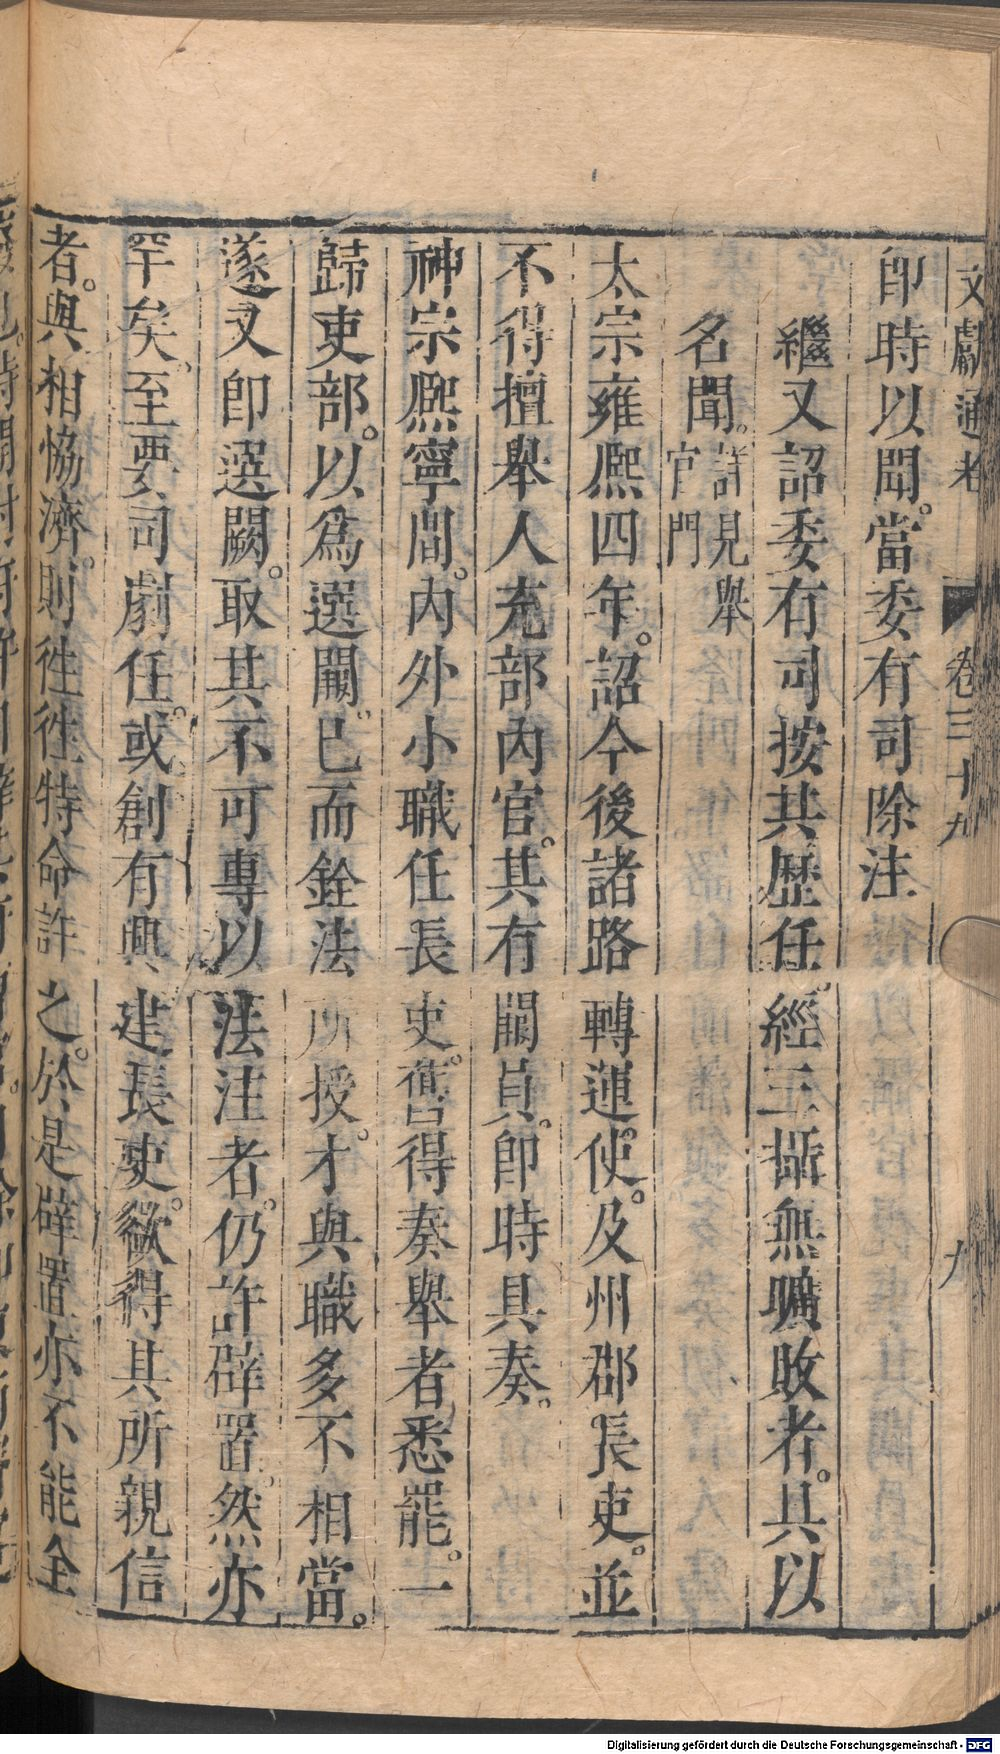 文獻通考 卷三十九 九
卽時以聞。當委有司除注
繼又詔委有司按其歷任。經三攝無曠敗者。具以
名聞。詳見舉官門
太宗雍熙四年。詔今後諸路轉運使。及州郡長吏。並
不得擅舉人充部內官。其有闕員。卽時具奏。
神宗熙寧間。內外小職任長吏。舊得奏舉者悉罷。一
歸吏部。以爲選闕。已而銓法所授。才與職多不相當。
遂又卽選闕。取其不可專以法注者。仍許辟置。然亦
罕矣。至要司劇任。或創有興建。長吏。欲得其所親信
者。與相恊濟。則徃徃特命許之。於是辟置亦不能全
Digitalisierung gefördert durch die Deutsche Forschungsgemeinschaft - DFG